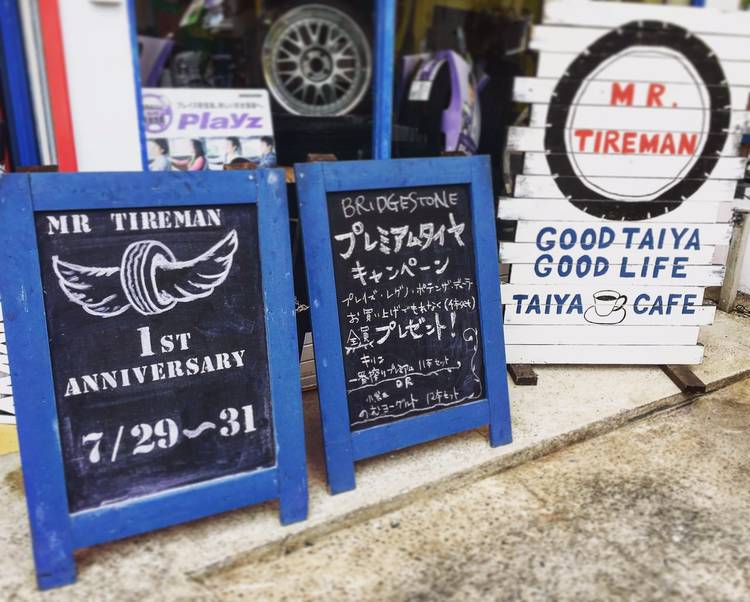 MR TIREMAN
1ST
ANNIVERSARY
7/29〜31
BRIDGESTONE
プレミアムタイヤ
キャンペーン
プレイズ・レグノ・ポテンザ・デューラー
お買い上げでもれなく(4本で)
全員プレゼント!
キリン
一番搾りプレミアム 11本セット
OR
のむヨーグルト 12本セット
Playz
MR.
TIREMAN
GOOD TAIYA
GOOD LIFE
TAIYA CAFE